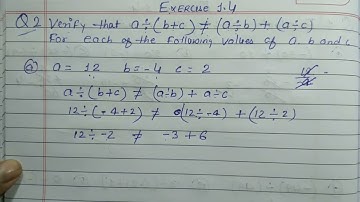 Exercise 1.4
Q2 Verify that a÷(b+c) ≠ (a÷b) + (a÷c)
For each of the following values of a, b and c
(a) a = 12 b = -4 c = 2
a÷(b+c) ≠ (a÷b) + a÷c
12÷(-4+2) ≠ (12÷-4) + (12÷2)
12÷-2 ≠ -3 + 6